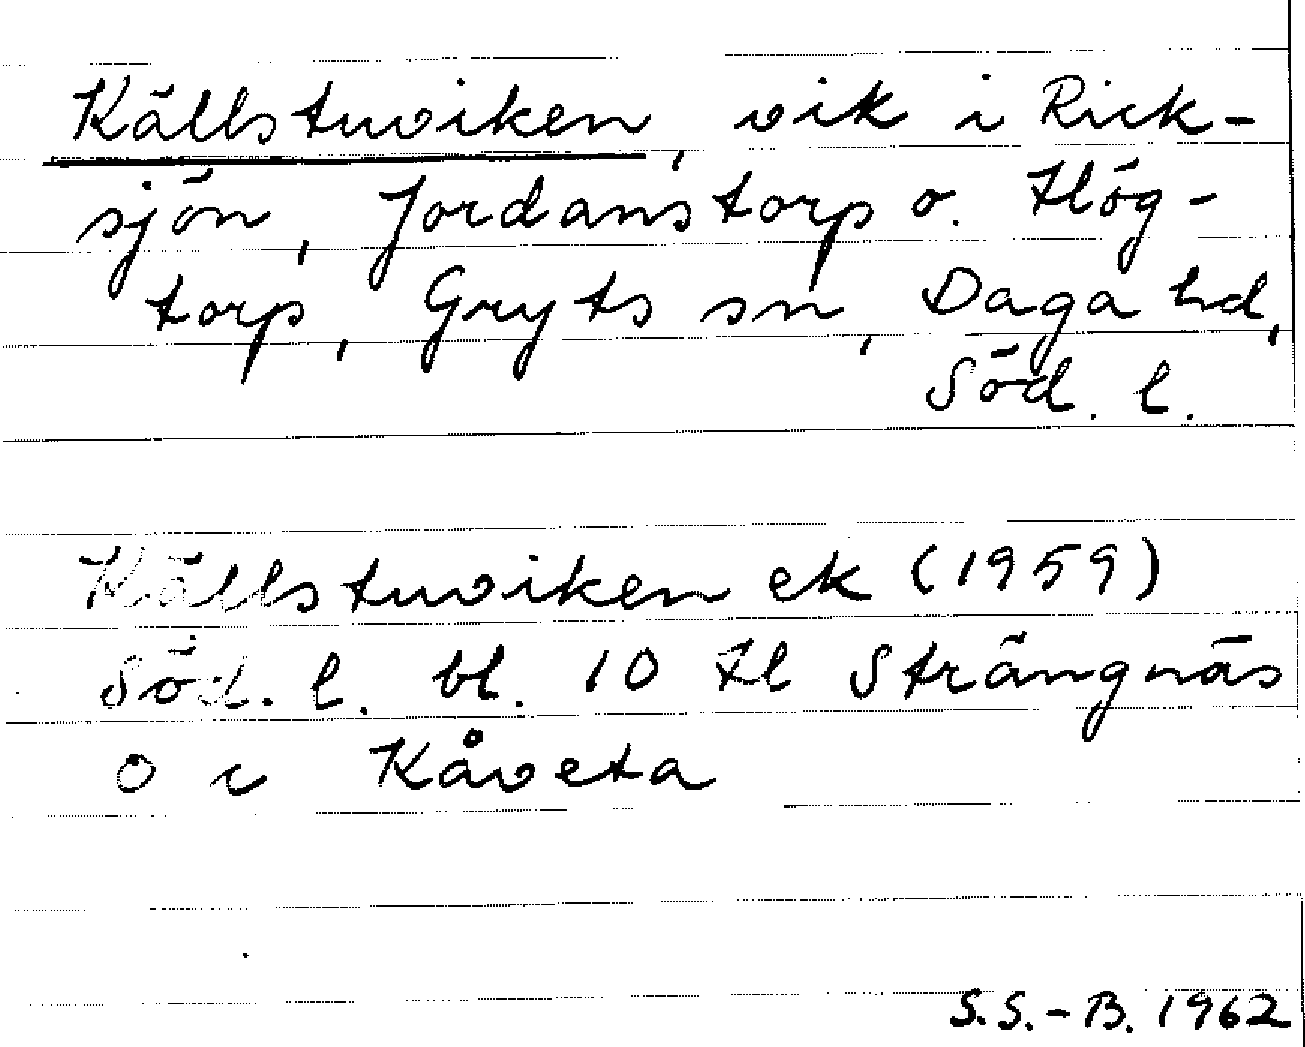 Källstuviken, vik i Rick-
sjön, Jordanstorp o. Hög-
torp, Gryts sn, Daga hd,
Söd. l.
Källstuviken ek (1959)
Söd. l. bl. 10 Hl Strängnäs
O i Kåveta
S.S.-B. 1962